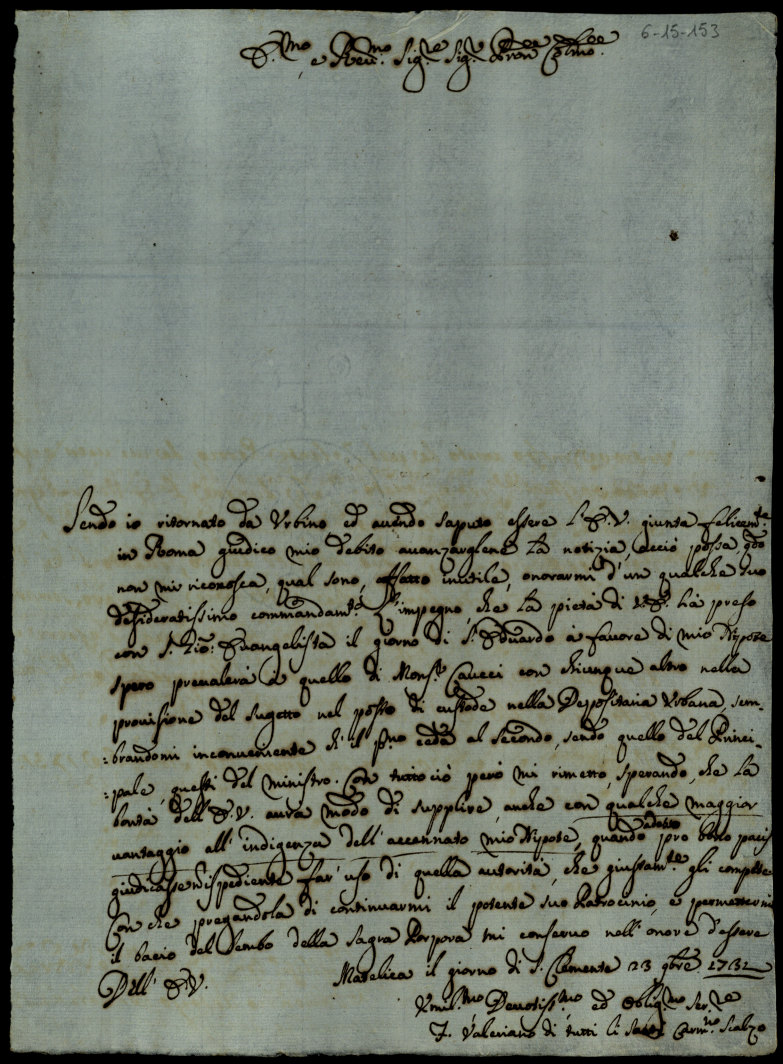 6-15-153
E.mo e Reu.mo Sig.re Sig.r Pron.e Col.mo
Sendo io ritornato da Urbino ed auendo saputo essere L'E.V. giunta felicem.te
in Roma giudico mio debito auanzarglene la notizia, acciò possa, qdo
non mi riconosca, qual sono, affatto inutile, onorarmi d'un qualche suo
desideratissimo commandam.to L'impegno, che la pietà di V.E. hà preso
con S. Gio: Euangelista il giorno di S. Eduardo à fauore di mio Nipote
spero preualerà à quello di Mons.r Caucci con chicenque altro nella
prouisione del sugetto nel posto di custode nella Depositaria Urbana, sem-
:brandomi inconueniente ch'il p.mo ceda al Secondo, sendo quello del Princi-
:pale, questi del ministro. Con tutto ciò però mi rimetto, sperando, che la
bontà dell'E.V. aurà modo di supplire, anche con qualche maggior
uantaggio all'indigenza dell'accennato mio Nipote, quando pro bono pacis
giudicasse ispediente far'uso di quella autorità, che giustam.te gli compete
Con che pregandola di continuarmi il potente suo Patrocinio, e permettermi
il bacio del Lembo della Sagra Porpora mi conseruo nell'onore d'essere
Dell'E.V.
Matelica il giorno di S. Clemente 23 9bre 1732
Umil.mo Deuotiss.mo ed Oblig.mo Ser.re
F. Valeriano di tutti li Santi Carm.no Scalzo